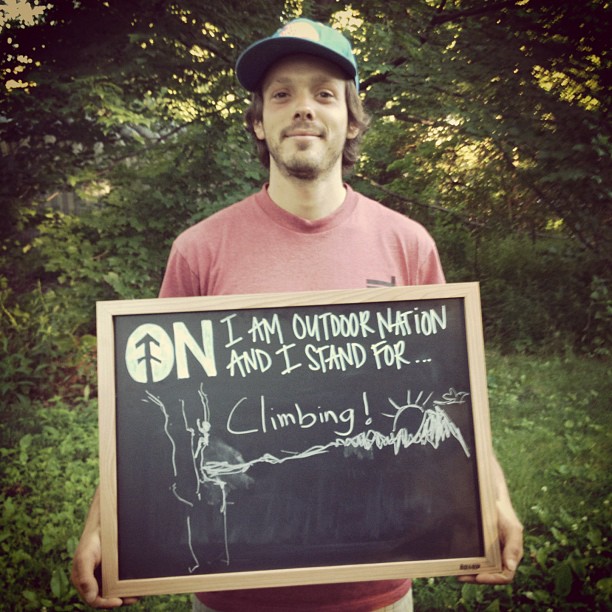 ON I AM OUTDOOR NATION
AND I STAND FOR...
Climbing!